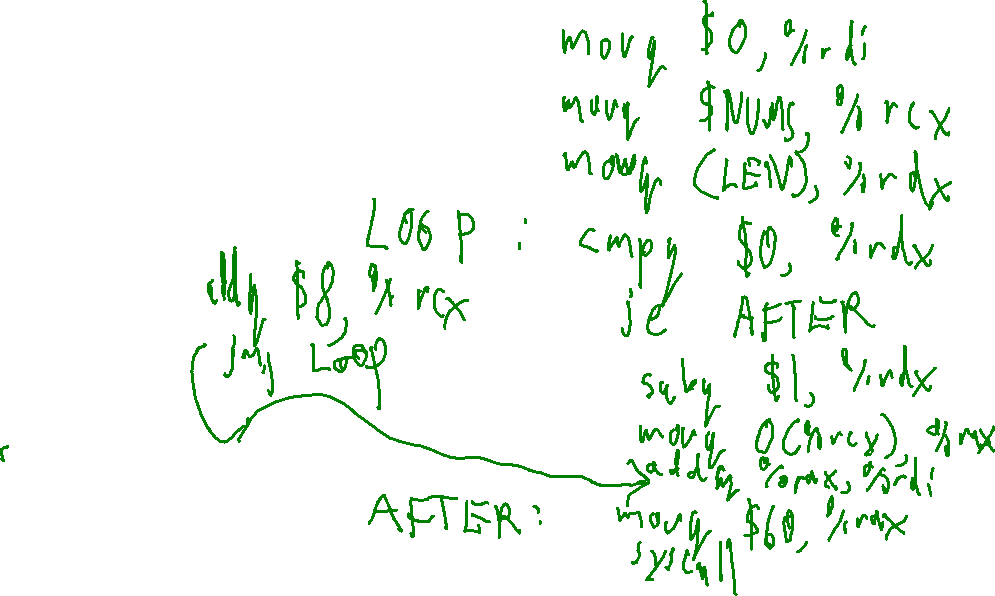 movq $0, %rdi
movq $NUMS, %rcx
movq (LEN), %rdx
LOOP: cmpq $0, %rdx
je AFTER
subq $1, %rdx
movq 0(%rcx), %rax
addq %rax, %rdi
addq $8, %rcx
jmp LOOP
AFTER: movq $60, %rax
syscall